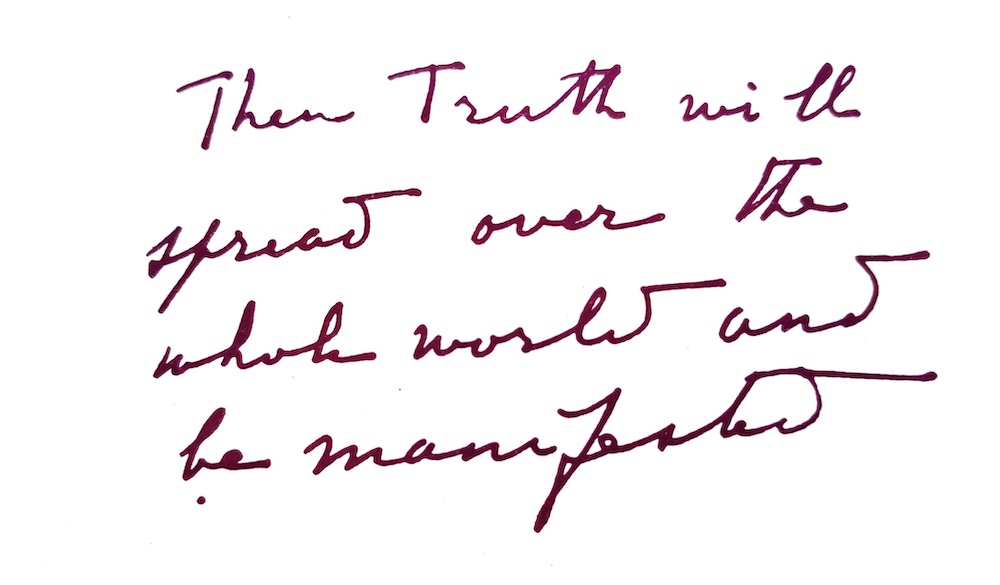 Then Truth will
spread over the
whole world and
be manifested